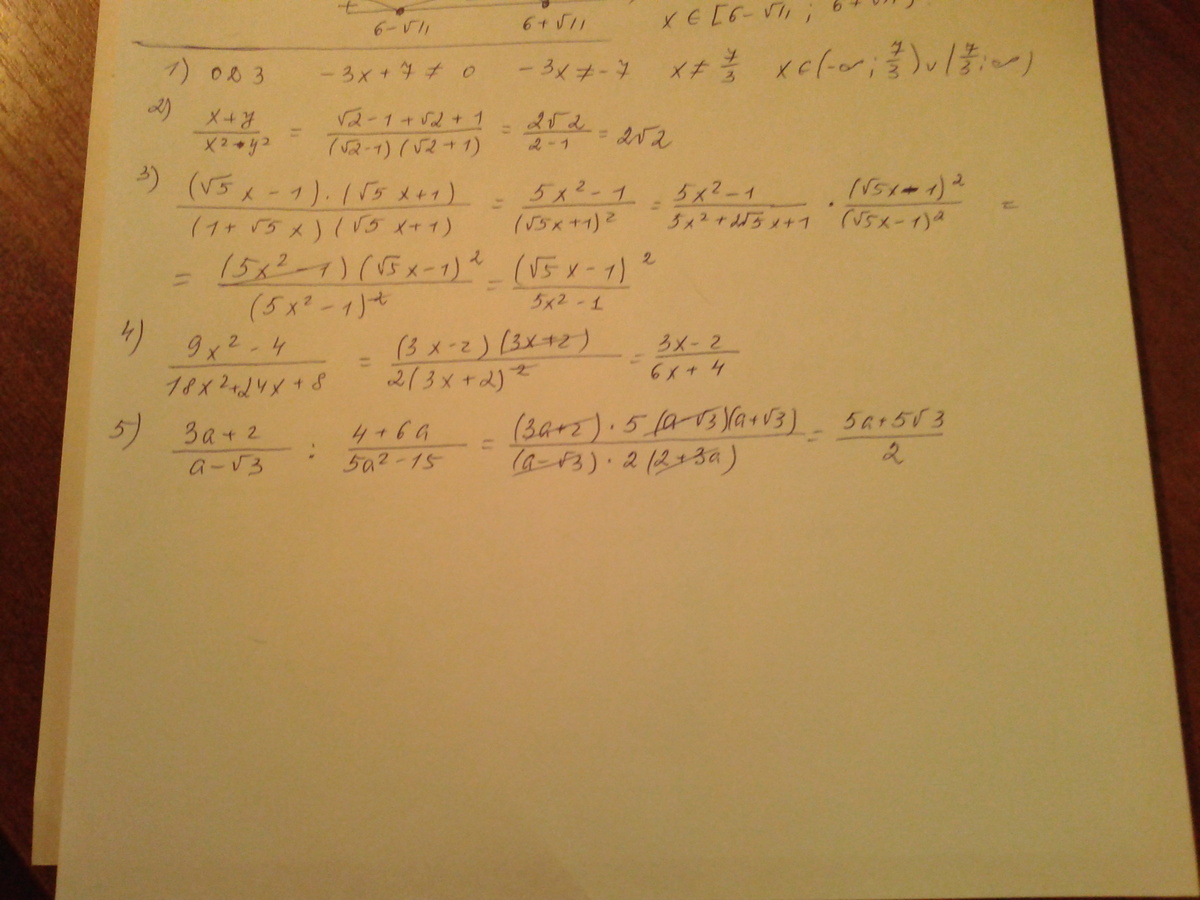 6-√11 6+√11 x ∈ [6-√11 ; 6+√11]
1) ОДЗ -3x+7 ≠ 0 -3x ≠ -7 x ≠ 7/3 x ∈ (-∞; 7/3) ∪ (7/3; ∞)
2) (x+y)/(x²·y²) = (√2-1+√2+1)/((√2-1)(√2+1)) = 2√2/(2-1) = 2√2
3) ((√5x-1)·(√5x+1))/((1+√5x)(√5x+1)) = (5x²-1)/(√5x+1)² = (5x²-1)/(5x²+2√5x+1) · (√5x-1)²/(√5x-1)² =
= ((5x²-1)(√5x-1)²)/(5x²-1)² = (√5x-1)²/(5x²-1)
4) (9x²-4)/(18x²+24x+8) = ((3x-2)(3x+2))/(2(3x+2)²) = (3x-2)/(6x+4)
5) (3a+2)/(a-√3) : (4+6a)/(5a²-15) = ((3a+2)·5(a-√3)(a+√3))/((a-√3)·2(2+3a)) = (5a+5√3)/2